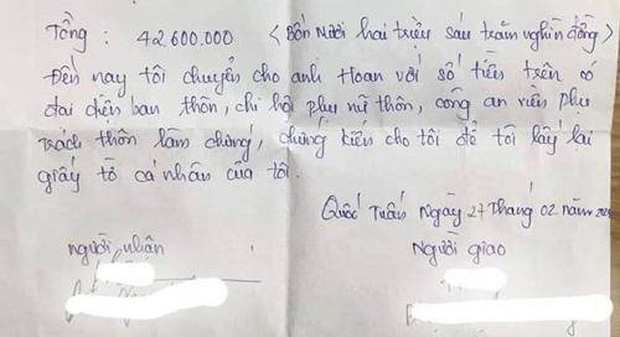 Tổng : 42.600.000 < Bốn mươi hai triệu sáu trăm nghìn đồng >
Đến nay tôi chuyển cho anh Hoan với số tiền trên có
đại diện ban thôn, chi hội phụ nữ thôn, công an viên phụ
trách thôn làm chứng, chứng kiến cho tôi để tôi lấy lại
giấy tờ cá nhân của tôi.
Quốc Tuấn Ngày 27 Tháng 02 năm
người nhận
Người giao